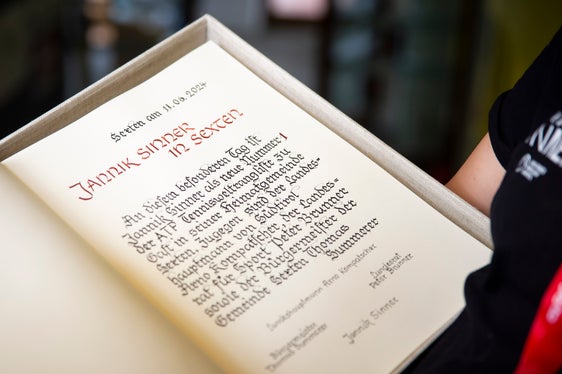 Sexten am 11.06.2024
JANNIK SINNER
IN SEXTEN
An diesem besonderen Tag ist
Jannik Sinner als neue Nummer 1
der ATP Tennisweltrangliste zu
Gast in seiner Heimatgemeinde
Sexten. Zugegen sind der Landes-
hauptmann von Südtirol
Arno Kompatscher der Landes-
rat für Sport Peter Brunner
sowie der Bürgermeister der
Gemeinde Sexten Thomas
Summerer
Landeshauptmann Arno Kompatscher
Landesrat
Peter Brunner
Bürgermeister
Thomas Summerer
Jannik Sinner